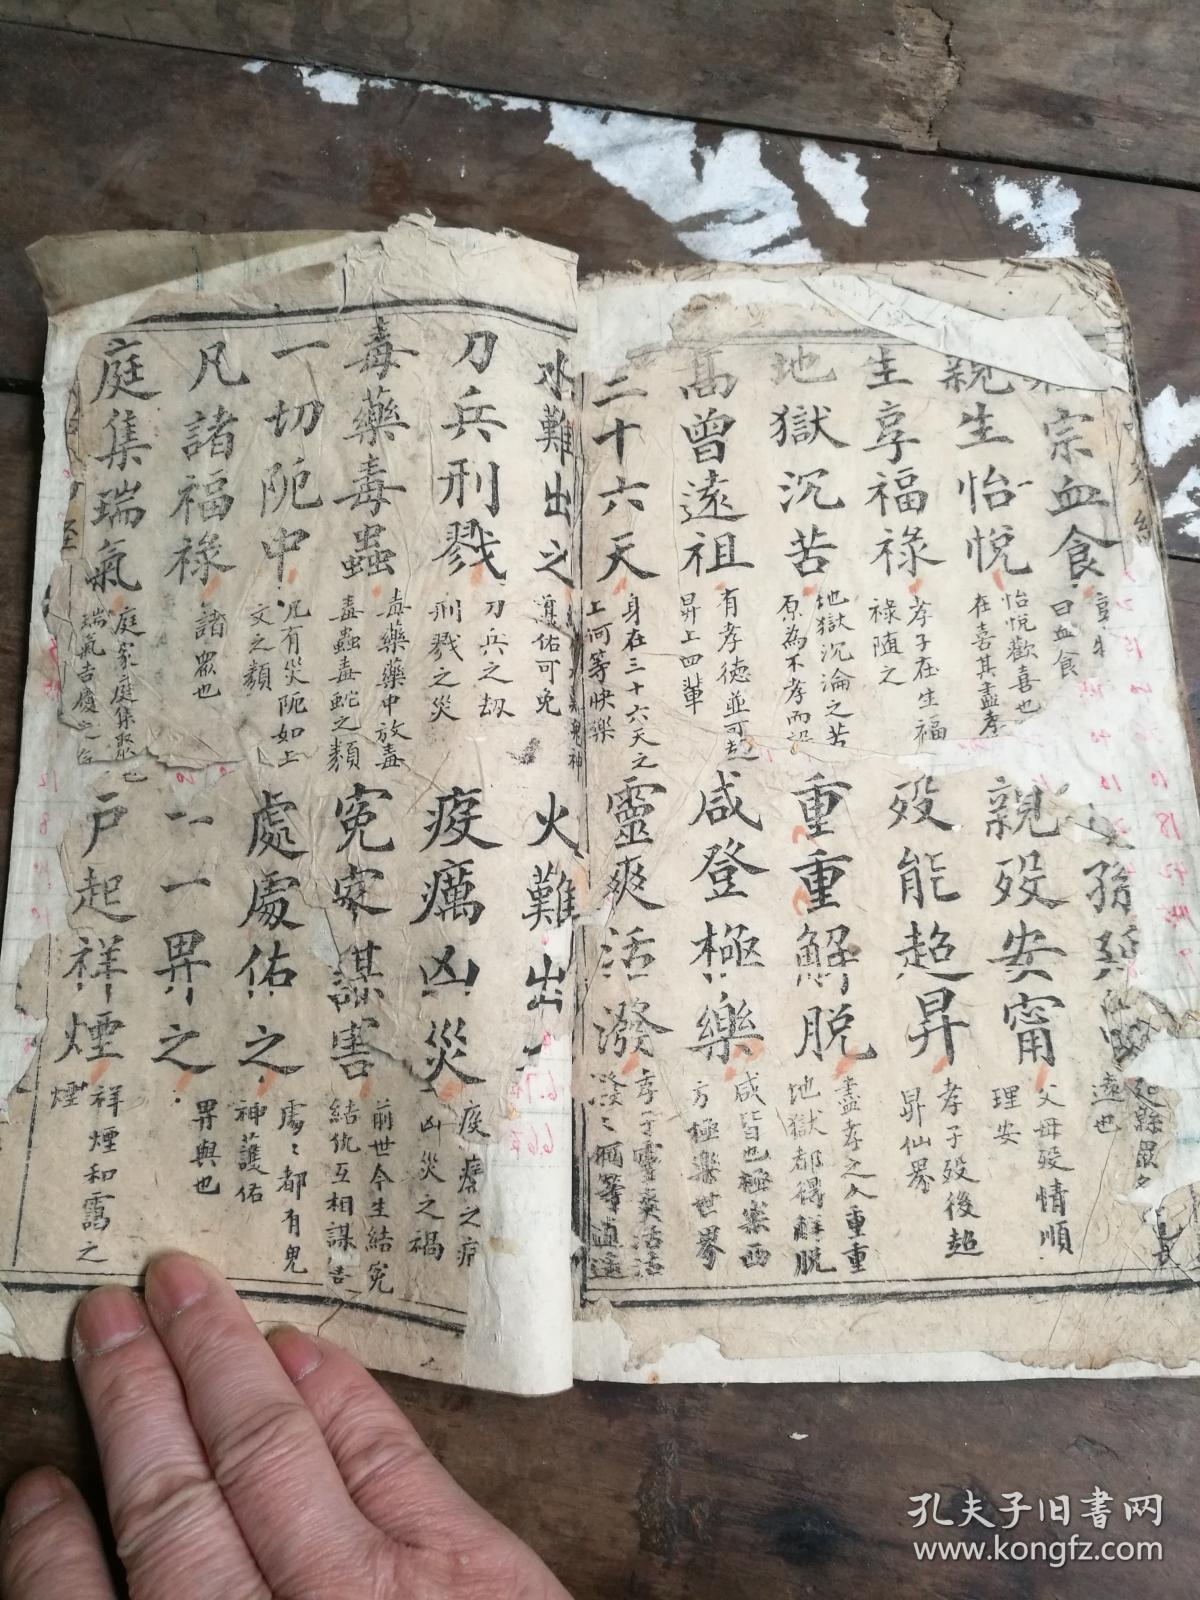 宗血食
曰血食
孫
遠也
親生怡悅
怡悅歡喜也
在喜其盡孝
親歿安甯
父母歿情順
理安
生享福祿
孝子在生福
祿隨之
歿能超昇
孝子歿後超
昇仙界
地獄沉苦
地獄沉淪之苦
原為不孝而設
重重解脱
盡孝之人重重
地獄都得解脱
高曾遠祖
有孝德並可超
昇上四輩
咸登極樂
咸皆也極樂西
方極樂世界
三十六天
身在三十六天之
上何等快樂
靈爽活潑
孝子靈爽活活
潑潑何等逍遥
水難出之
火難出
刀兵刑戮
刀兵之刼
刑戮之災
疫癘凶災
疫癘之病
凶災之禍
毒藥毒蟲
毒藥藥中放毒
毒蟲毒蛇之類
寃家謀害
前世今生結寃
結仇互相謀害
一切阨中
凡有災阨如上
文之類
處處佑之
處處都有鬼
神護佑
凡諸福祿
諸眾也
一一畀之
畀與也
庭集瑞氣
庭家庭集聚也
瑞氣吉慶之
戸起祥煙
祥煙和靄之
煙
孔夫子旧书网
www.kongfz.com